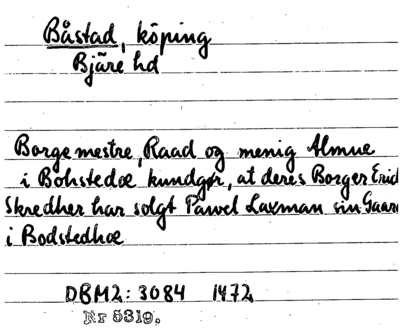 Båstad, köping
Bjäre hd
Borgemestre, Raad og menig Almue
i Bohstedoe kundgør, at deres Borger Erid
Skredher har solgt Pawel Laxman sin Gaard
i Bodstedhoe
DBM2: 3084 1472
Nr 5319.